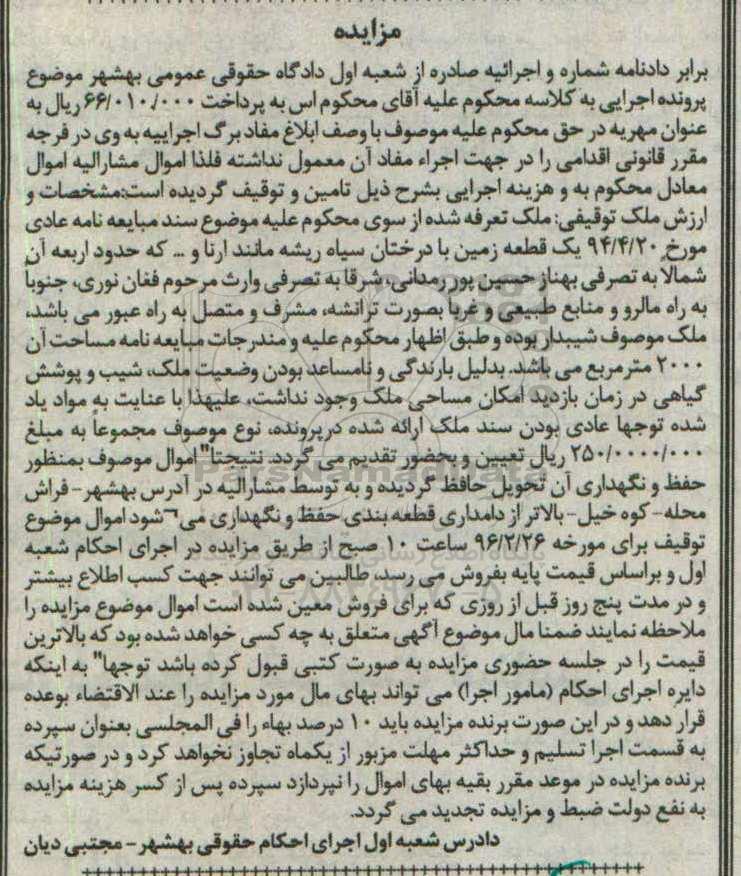 مزایده
برابر دادنامه شماره و اجرائیه صادره از شعبه اول دادگاه حقوقی عمومی بهشهر موضوع
پرونده اجرایی به کلاسه محکوم علیه آقای محکوم اس به پرداخت ۶۶/۰۱۰/۰۰۰ ریال به
عنوان مهریه در حق محکوم علیه موصوف با وصف ابلاغ مفاد برگ اجراییه به وی در فرجه
مقرر قانونی اقدامی را در جهت اجراء مفاد آن معمول نداشته فلذا اموال مشارالیه اموال
معادل محکوم به و هزینه اجرایی بشرح ذیل تامین و توقیف گردیده است:مشخصات و
ارزش ملک توقیفی: ملک تعرفه شده از سوی محکوم علیه موضوع سند مبایعه نامه عادی
مورخ ۹۴/۴/۲۰ یک قطعه زمین با درختان سیاه ریشه مانند ارنا و ... که حدود اربعه آن
شمالاً به تصرفی بهناز حسین پور رمدانی، شرقا به تصرفی وارث مرحوم فغان نوری، جنوباً
به راه مالرو و منابع طبیعی و غرباً بصورت ترانشه، مشرف و متصل به راه عبور می باشد،
ملک موصوف شیبدار بوده و طبق اظهار محکوم علیه و مندرجات مبایعه نامه مساحت آن
۲۰۰۰ مترمربع می باشد. بدلیل بارندگی و نامساعد بودن وضعیت ملک، شیب و پوشش
گیاهی در زمان بازدید امکان مساحی ملک وجود نداشت، علیهذا با عنایت به مواد یاد
شده توجها عادی بودن سند ملک ارائه شده در پرونده، نوع موصوف مجموعاً به مبلغ
۲۵۰/۰۰۰۰/۰۰۰ ریال تعیین و بحضور تقدیم می گردد. نتیجتا" اموال موصوف بمنظور
حفظ و نگهداری آن تحویل حافظ گردیده و به توسط مشارالیه در آدرس بهشهر- فراش
محله- کوه خیل- بالاتر از دامداری قطعه بندی حفظ و نگهداری می¬شود اموال موضوع
توقیف برای مورخه ۹۶/۲/۲۶ ساعت ۱۰ صبح از طریق مزایده در اجرای احکام شعبه
اول و براساس قیمت پایه بفروش می رسد. طالبین می توانند جهت کسب اطلاع بیشتر
و در مدت پنج روز قبل از روزی که برای فروش معین شده است اموال موضوع مزایده را
ملاحظه نمایند ضمنا مال موضوع آگهی متعلق به چه کسی خواهد شده بود که بالاترین
قیمت را در جلسه حضوری مزایده به صورت کتبی قبول کرده باشد توجها" به اینکه
دایره اجرای احکام (مامور اجرا) می تواند بهای مال مورد مزایده را عند الاقتضاء بوعده
قرار دهد و در این صورت برنده مزایده باید ۱۰ درصد بهاء را فی المجلسی بعنوان سپرده
به قسمت اجرا تسلیم و حداکثر مهلت مزبور از یکماه تجاوز نخواهد کرد و در صورتیکه
برنده مزایده در موعد مقرر بقیه بهای اموال را نپردازد سپرده پس از کسر هزینه مزایده
به نفع دولت ضبط و مزایده تجدید می گردد.
دادرس شعبه اول اجرای احکام حقوقی بهشهر - مجتبی دیان